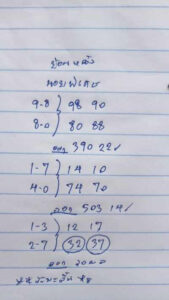 ย้อนหลัง
หวยพิเศษ
9-8 } 98 90
8-0 } 80 88
ออก 390 22✓
1-7 } 14 10
4-0 } 74 70
ออก 503 14✓
1-3 } 12 17
2-7 } 32 37
ออก